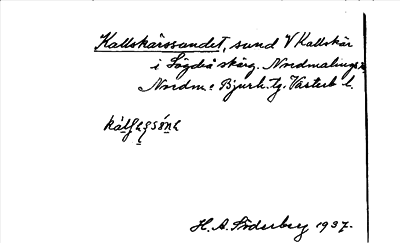 Kallskärssundet, sund V Kallskär
i Lögdeå skärg. Nordmalings sn
Nordm. o Bjurh. tg. Västerb. l.
H. A. Söderberg 1937.